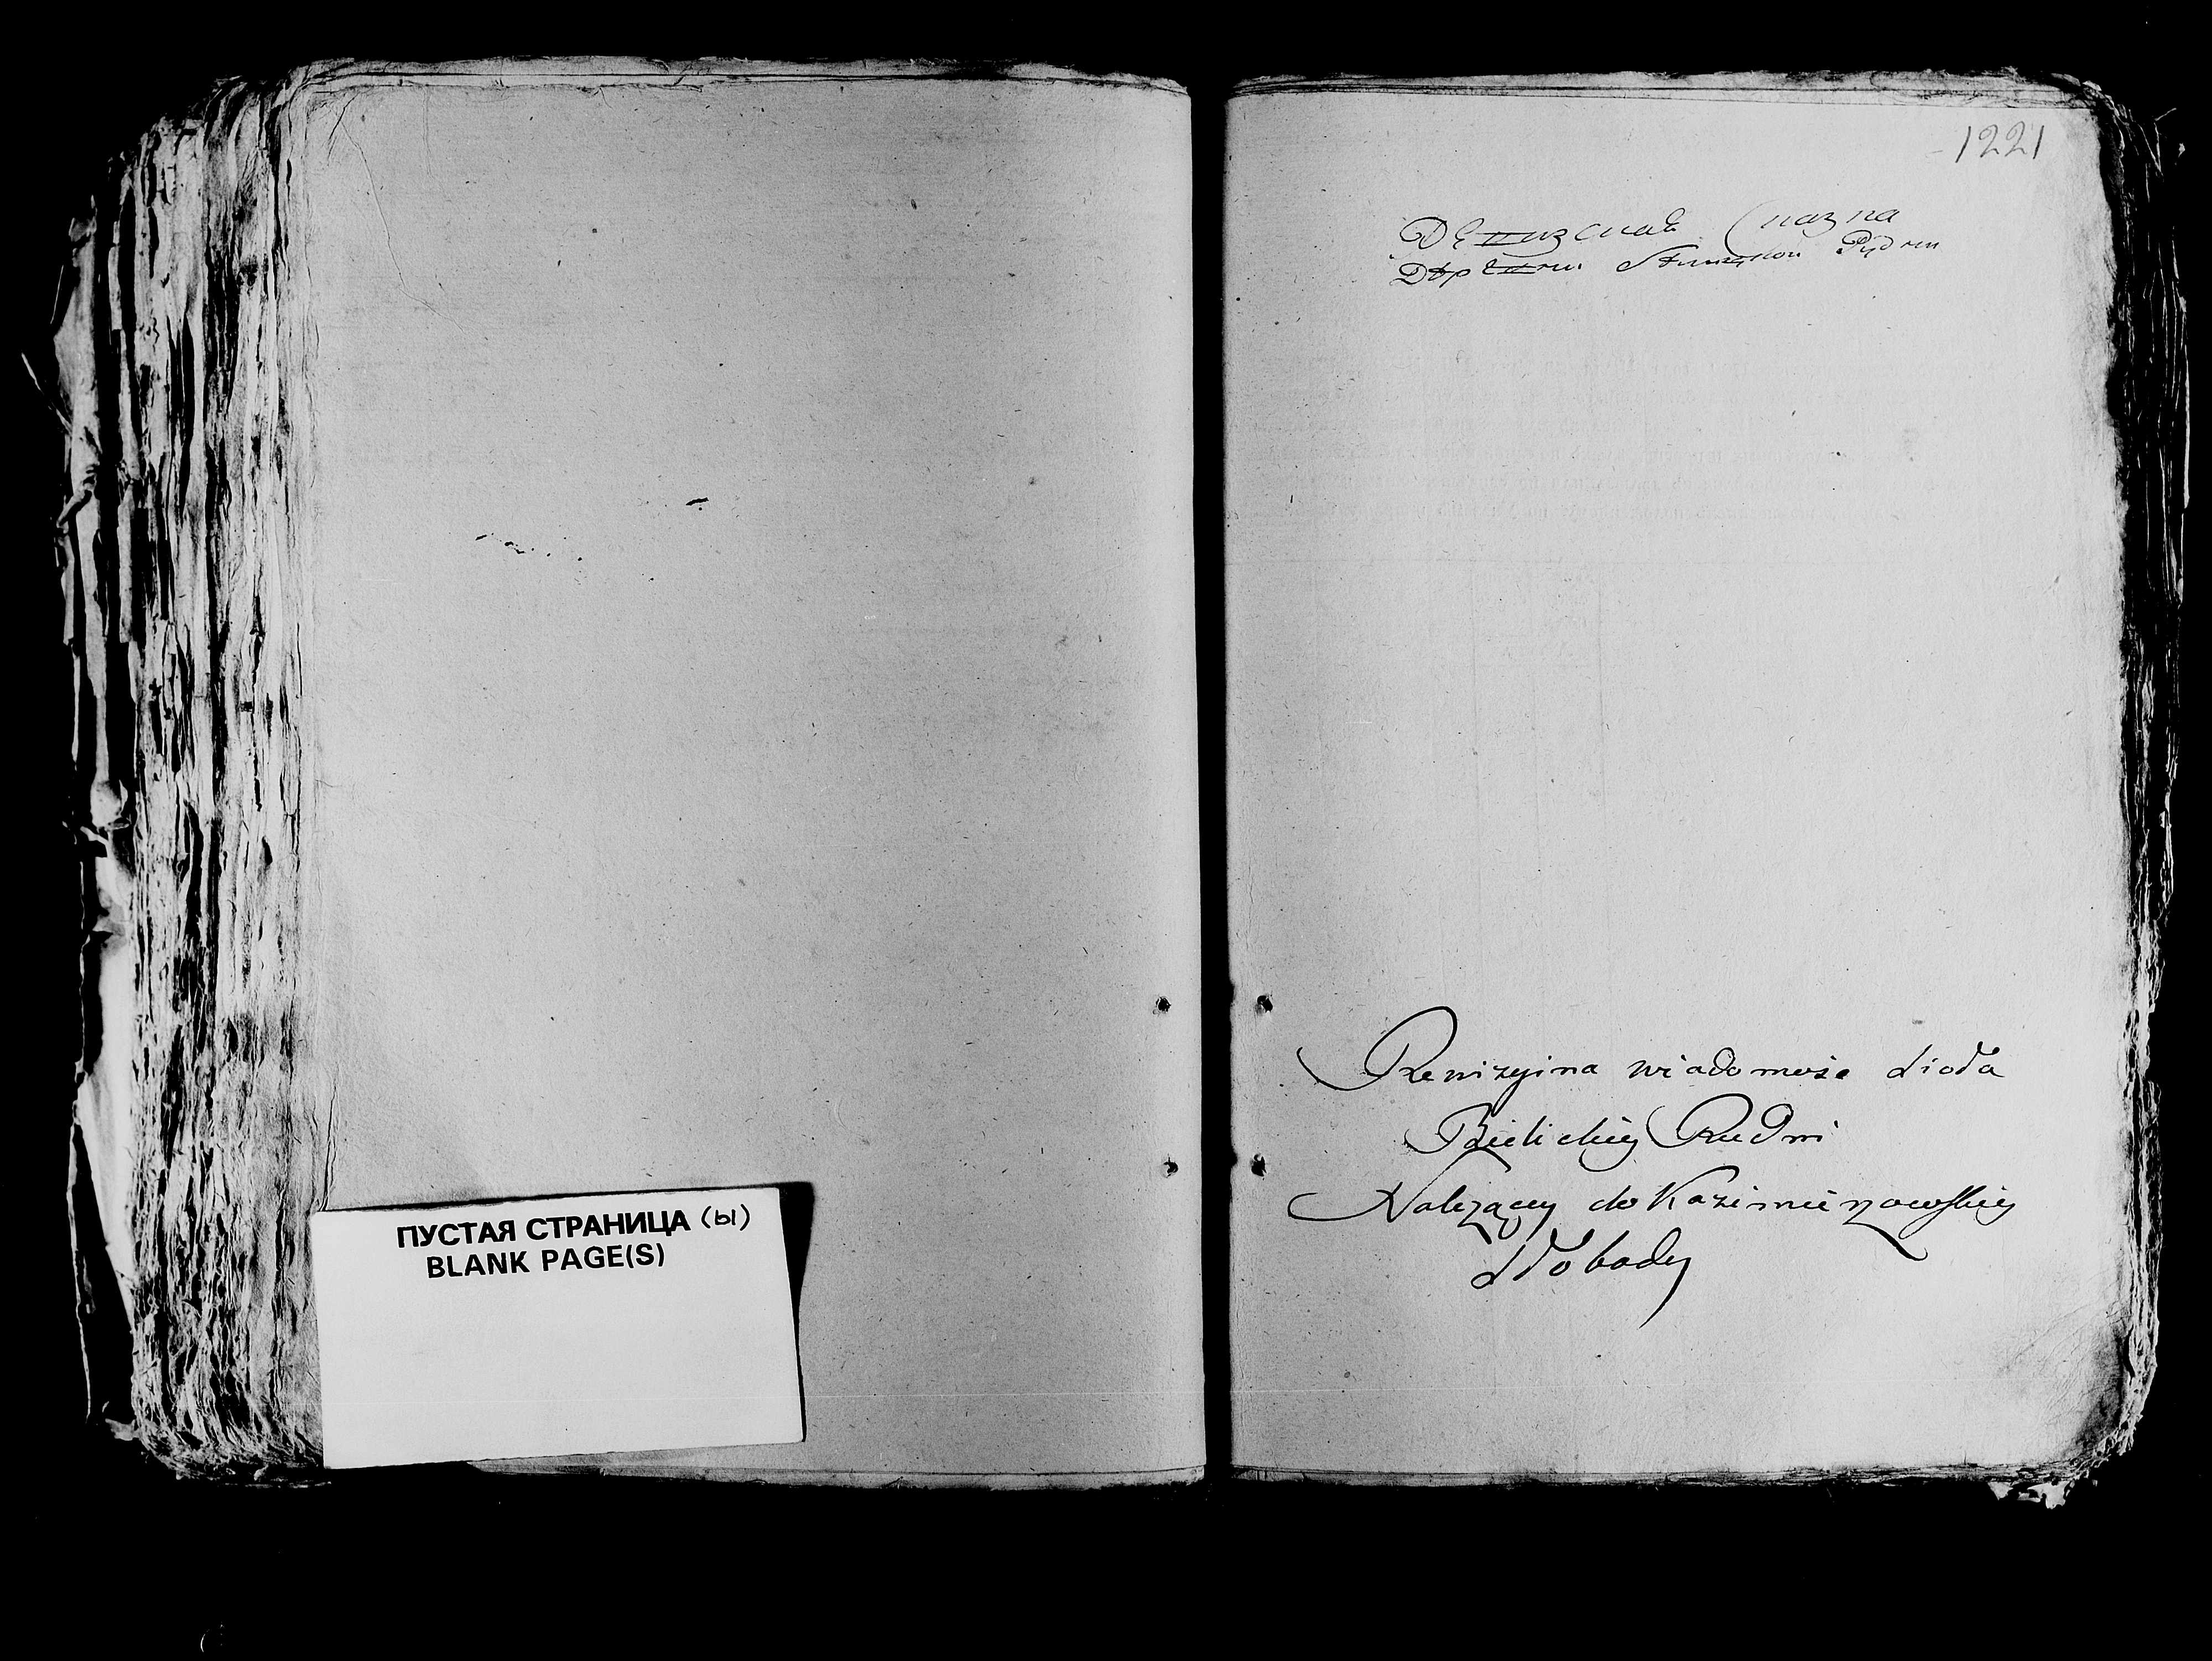 ПУСТАЯ СТРАНИЦА (ы)
BLANK PAGE(S)
1221
Ревизская сказка
Деревни Рудни
Rewizyina wiadomość siola
Bielickiey Rudni
Należącey do Kazimierzowskiey
Słobody